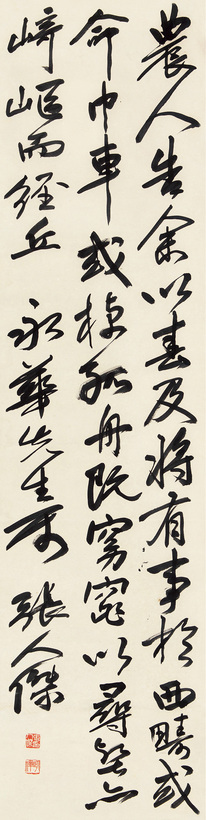 農人告余以春及將有事於西疇或
命巾車或棹孤舟既窈窕以尋壑亦
崎嶇而經丘 永華先生屬 張人傑